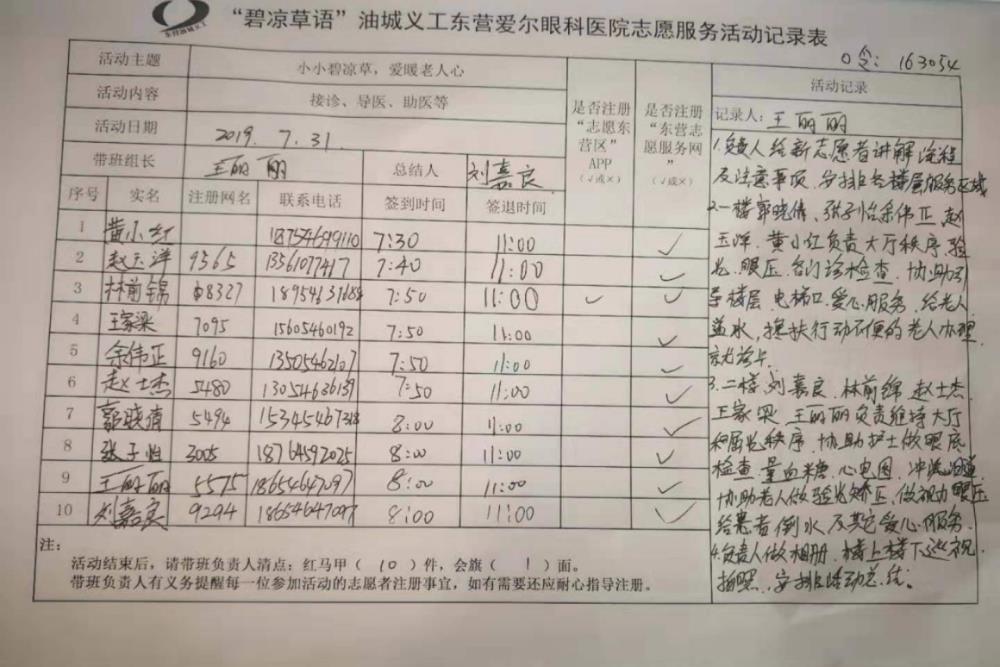 东营油城义工
“碧凉草语”油城义工东营爱尔眼科医院志愿服务活动记录表
口令：163054
活动主题 小小碧凉草，爱暖老人心
活动内容 接诊、导医、助医等
活动日期 2019.7.31
带班组长 王丽丽 总结人 刘嘉良
是否注册“志愿东营区”APP（√或×）
是否注册“东营志愿服务网”（√或×）
序号 实名 注册网名 联系电话 签到时间 签退时间
1 黄小红 18754699110 7:30 11:00 √
2 赵玉洋 9365 13561077417 7:40 11:00 √
3 林前锦 08327 18954631684 7:50 11:00 √ √
4 王家梁 7095 15605460192 7:50 11:00 √
5 余伟正 9160 13505462107 7:50 11:00 √
6 赵士杰 5480 13054636139 7:50 11:00 √
7 郭晓倩 5494 8:00 11:00 √
8 张子怡 3005 18764592025 8:00 11:00 √
9 王丽丽 5575 18654647097 8:00 11:00 √
10 刘嘉良 9294 18654647097 8:00 11:00 √
注：
活动结束后，请带班负责人清点：红马甲（10）件，会旗（1）面。
带班负责人有义务提醒每一位参加活动的志愿者注册事宜，如有需要还应耐心指导注册。
活动记录
记录人：王丽丽
1.负责人给新志愿者讲解流程
及注意事项、安排各楼层服务区域
2.一楼郭晓倩、张子怡余伟正、赵
玉洋、黄小红负责大厅秩序、验
光、眼压、各门诊检查、协助引
导楼层、电梯口、爱心服务、给老人
盖水，搀扶行动不便的老人办理
就诊卡
3.二楼刘嘉良、林前锦、赵士杰、
王家梁、王丽丽负责维持大厅
和屈光秩序、协助护士做眼底
检查、量血糖、心电图、冲洗泪道
协助老人做验光矫正、做视力眼压
给患者倒水及其它爱心服务.
4.负责人做相册、楼上楼下巡视、
拍照、安排活动总结.